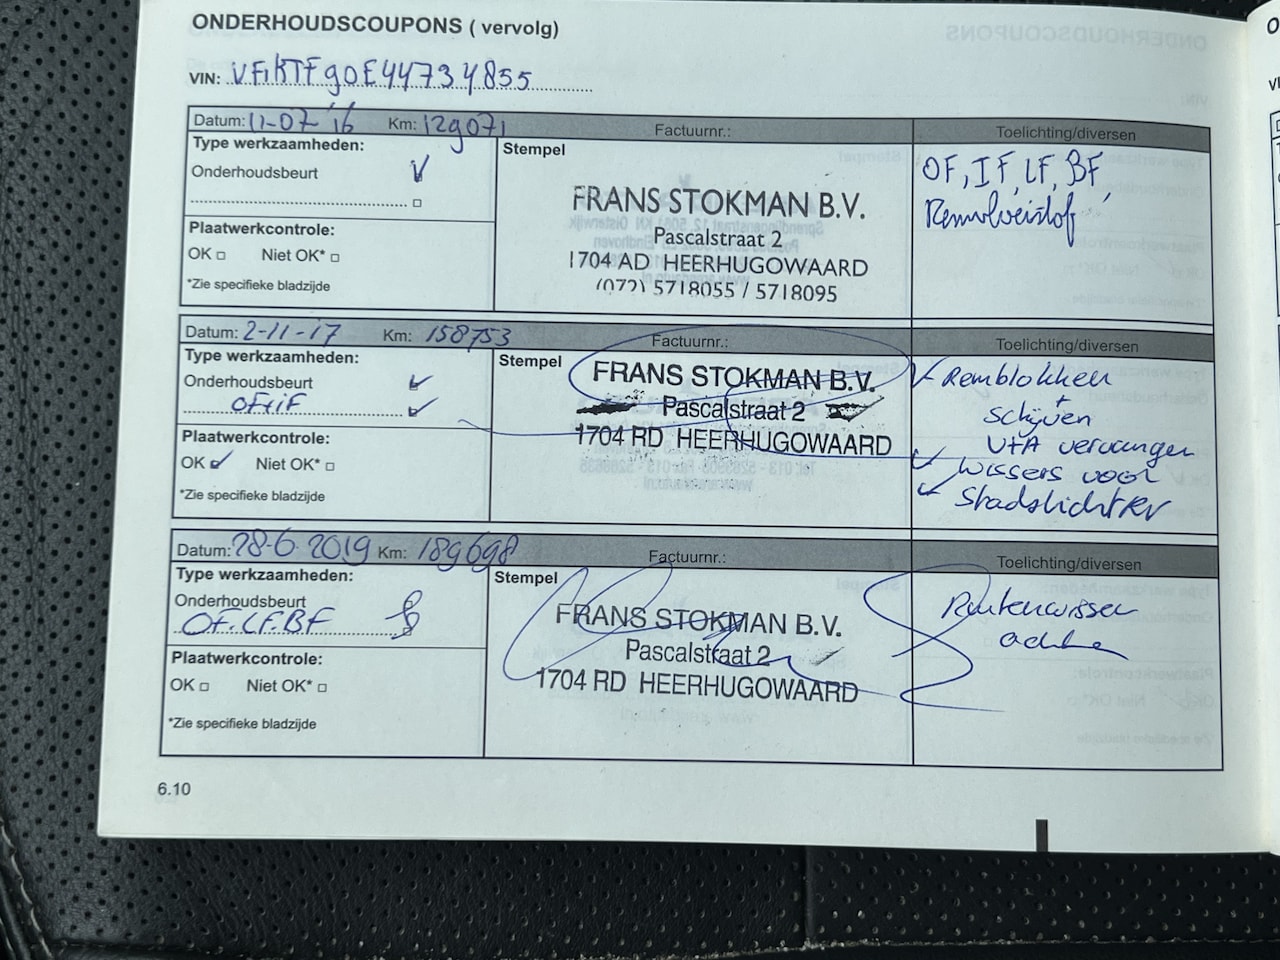 ONDERHOUDSCOUPONS ( vervolg)
VIN: VF1KTFg0E44734855
Datum: 11-07-'16 Km: 129071 Factuurnr.: Toelichting/diversen
Type werkzaamheden:
Onderhoudsbeurt
Plaatwerkcontrole:
OK Niet OK*
*Zie specifieke bladzijde
Stempel
FRANS STOKMAN B.V.
Pascalstraat 2
1704 AD HEERHUGOWAARD
(072) 5718055 / 5718095
OF, IF, LF, BF
Remvloeistof
Datum: 2-11-17 Km: 158753 Factuurnr.: Toelichting/diversen
Type werkzaamheden:
Onderhoudsbeurt
OF+IF
Plaatwerkcontrole:
OK Niet OK*
*Zie specifieke bladzijde
Stempel
FRANS STOKMAN B.V.
Pascalstraat 2
1704 RD HEERHUGOWAARD
Remblokken
+
schijven
V+A vervangen
wissers voor
Stadslichten
Datum: 28-6-2019 Km: 189698 Factuurnr.: Toelichting/diversen
Type werkzaamheden:
Onderhoudsbeurt
OF.LF.BF
Plaatwerkcontrole:
OK Niet OK*
*Zie specifieke bladzijde
Stempel
FRANS STOKMAN B.V.
Pascalstraat 2
1704 RD HEERHUGOWAARD
Ruitenwisser
achter
6.10